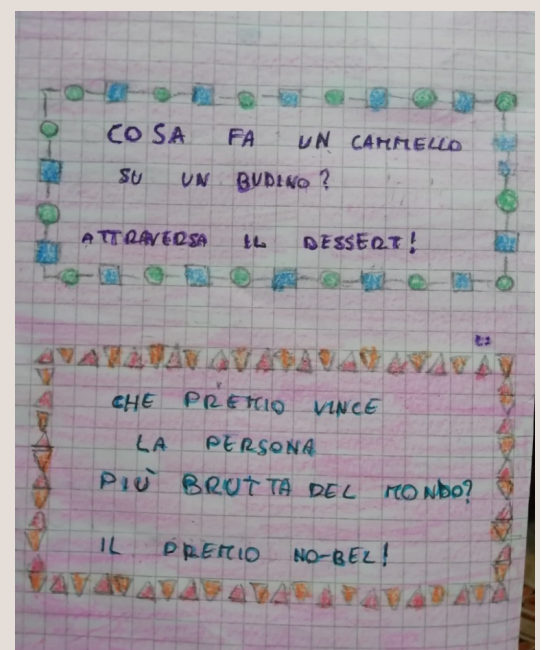 COSA FA UN CAMMELLO
SU UN BUDINO?
ATTRAVERSA IL DESSERT!
CHE PREMIO VINCE
LA PERSONA
PIÙ BRUTTA DEL MONDO?
IL PREMIO NO-BEL!